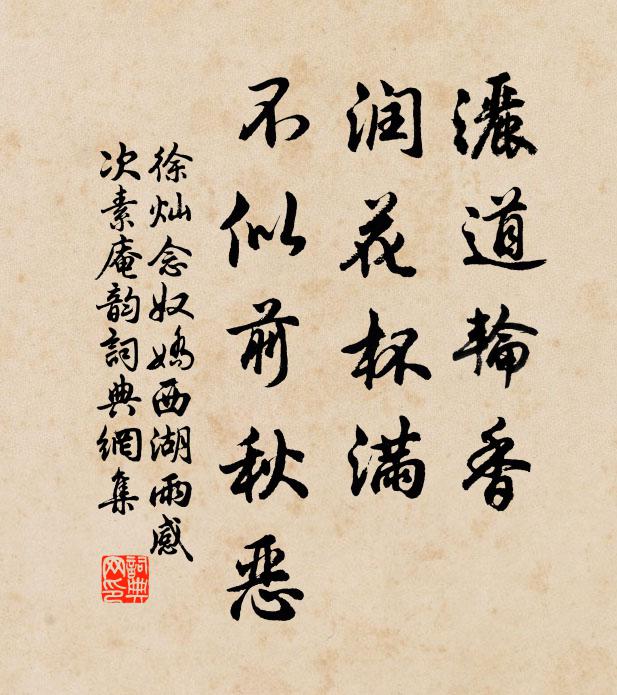 灑道輪香
润花杯满
不似前秋恶
徐灿念奴娇西湖雨感
次素庵韵詞典網集
詞典
网印